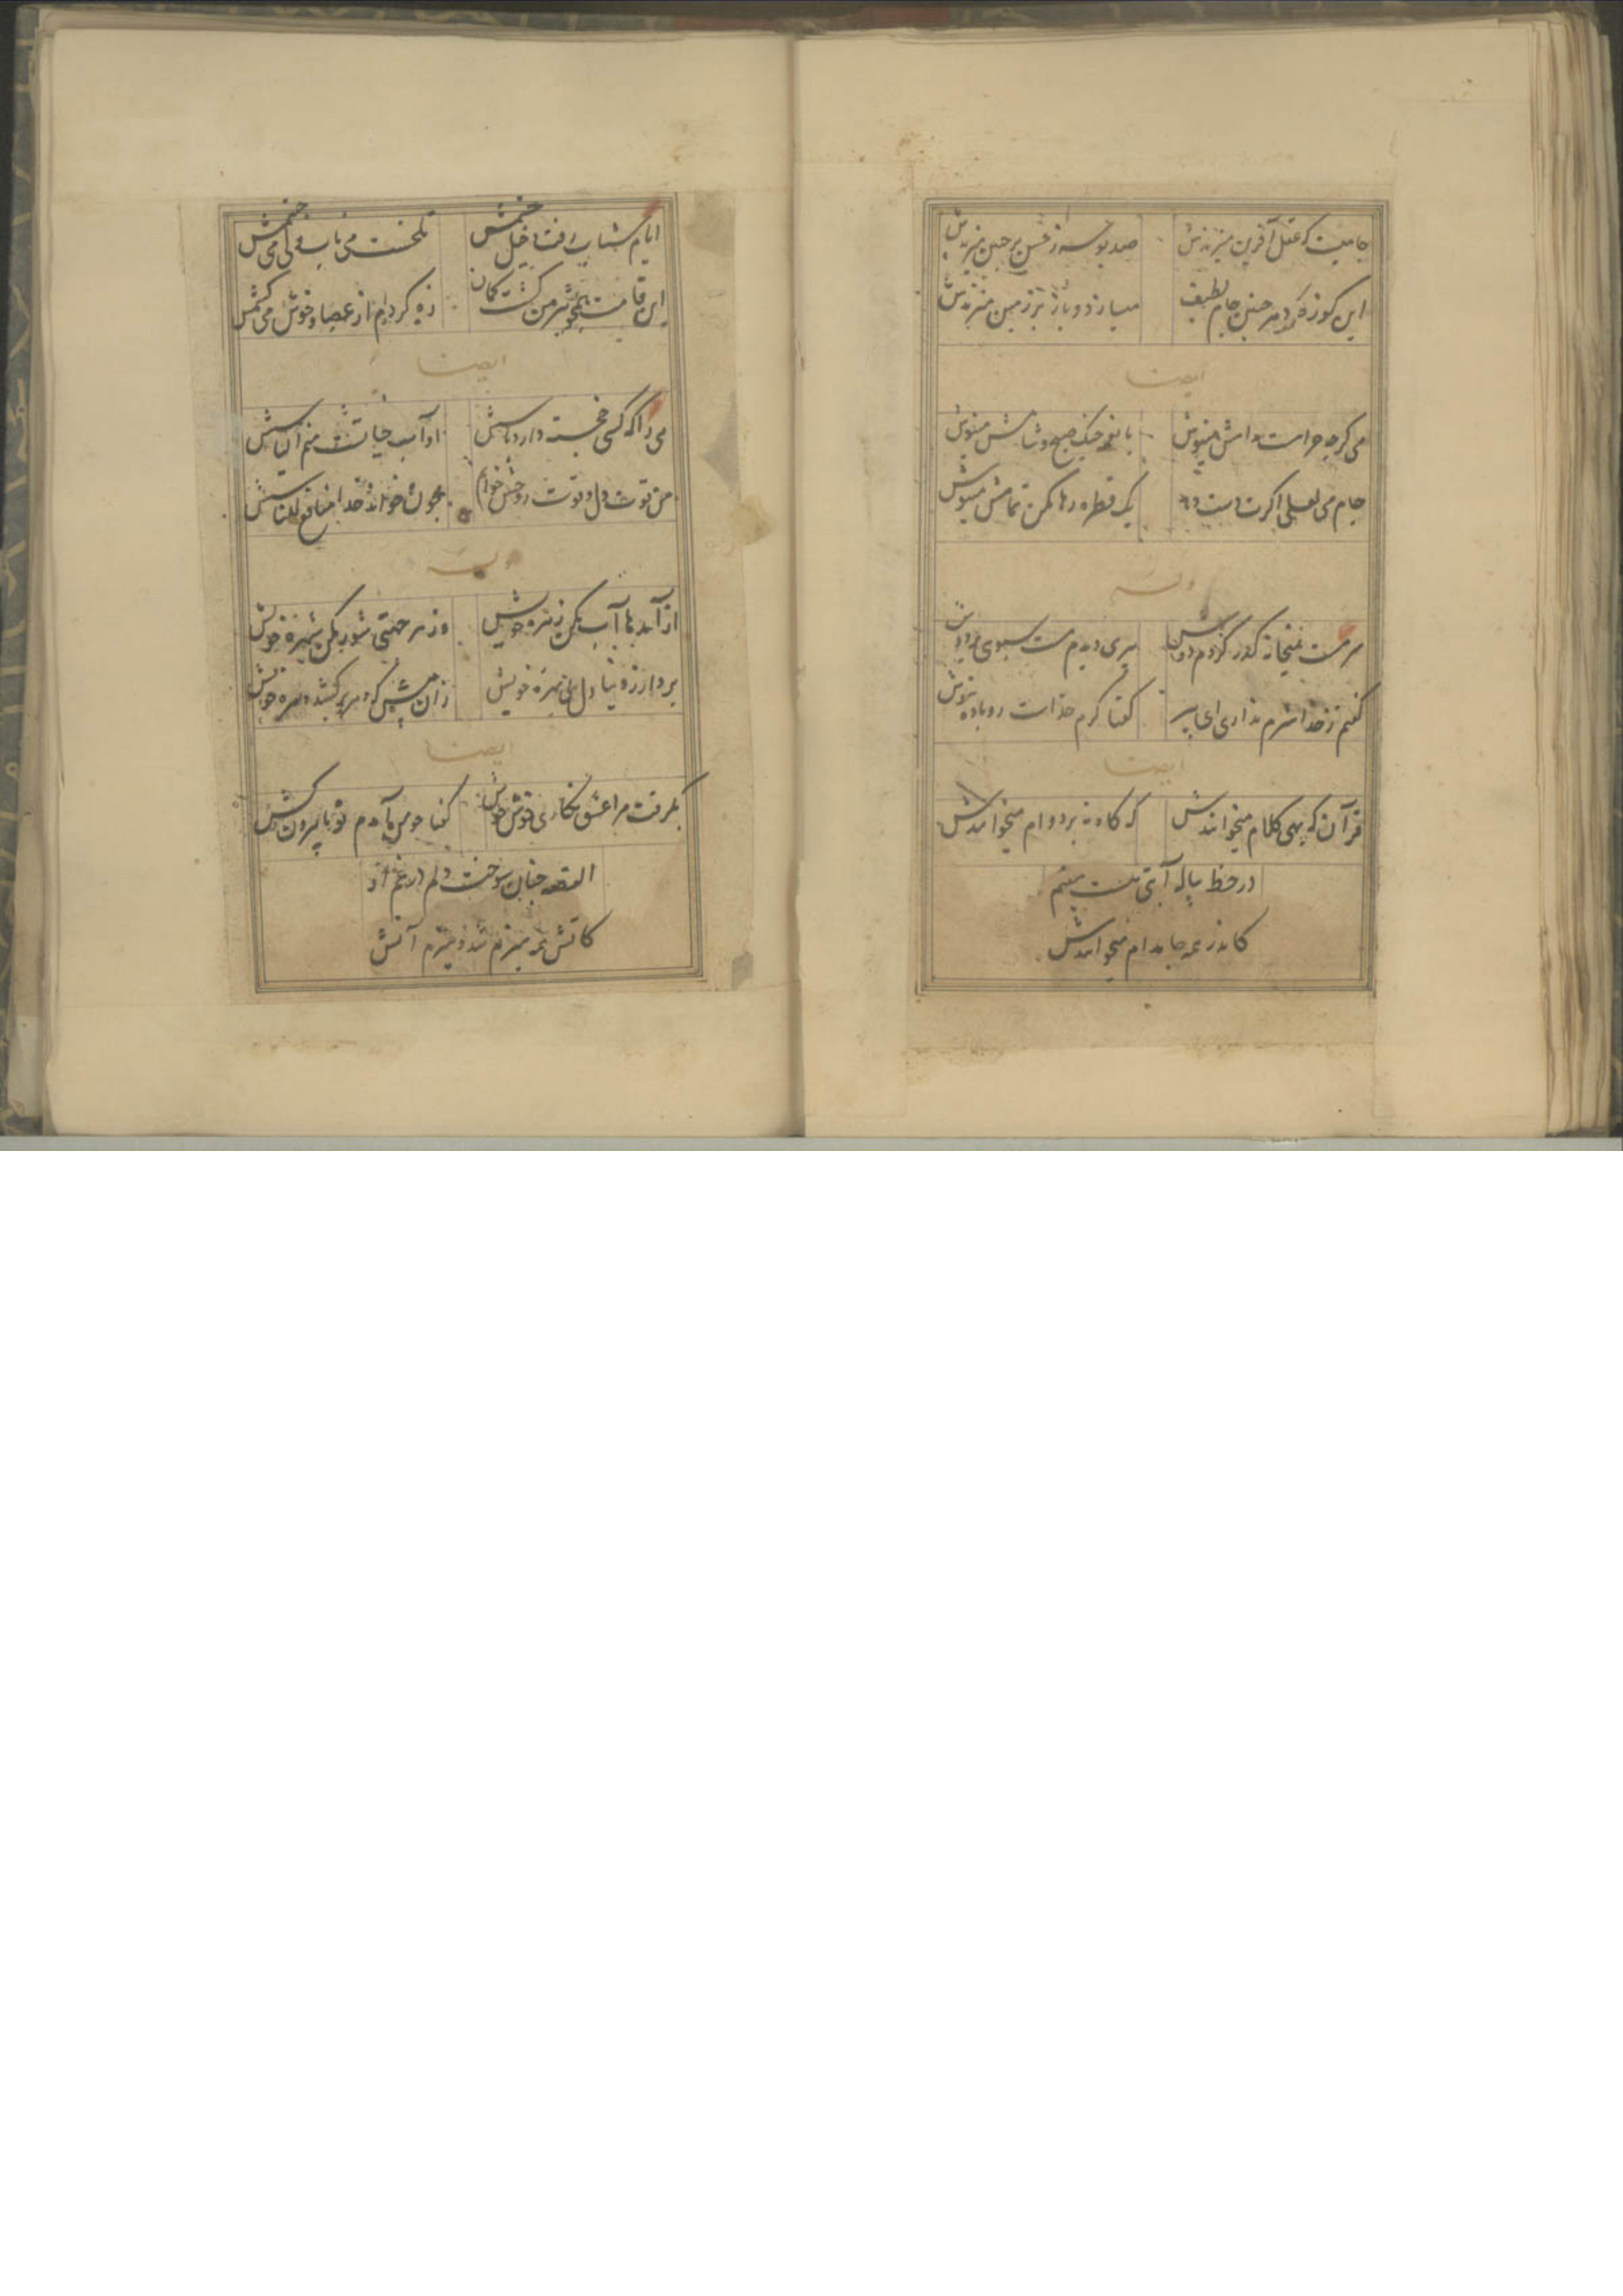 جامیت که عقل آفرین میزندش
صد بوسه ز حسن بر جبین میزندش
این کوزه‌گر دهر چنین جام لطیف
میسازد و باز بر زمین میزندش
ایضا
می گرچه حرامست مدامش مینوش
با نغمه چنگ صبح و شامش مینوش
جام می لعلی اگرت دست دهد
یک قطره رها مکن تمامش مینوش
وله
سرمست بمیخانه گذر کردم دوش
پیری دیدم مست سبوئی بر دوش
گفتم ز خدا شرم نداری ای پیر
گفتا کرم خداست رو باده بنوش
ایضا
قرآن که بهی کلام میخوانندش
که گاه نه بر دوام میخوانندش
در خط پیاله آیتی هست مقیم
کاندر همه جا مدام میخوانندش
ایام شبابرفت خیل حشمش
تلخست می ناب ولی می چشمش
این قامت همچو تیر من گشت کمان
زه کرده‌ام از عصا و خوش می‌کشمش
ایضا
می را که کسی خجسته دارد پاسش
او آب حیاتست منم الیاسش
من قوت دل و قوت روحش خوانم
چون خواند خدا منافع للناسش
وله
از آمدها آب مکن زهره خویش
وز نر مکن شهره خویش
بردار ز دنیای دنی بهره خویش
زان پیش که دهر برکشد دهره خویش
ایضا
بگرفت مرا عشق نگاری خوش خوش
گفتا چو من آمدم تو پا بیرون کش
القصه چنان سوخت دلم در غم او
کاتش همه هیزم شد و هیزم آتش